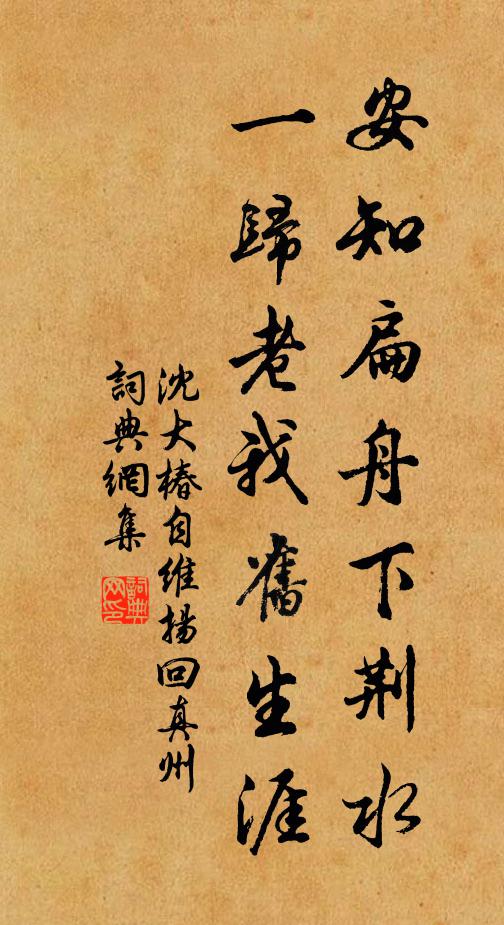 安知扁舟下荆水
一歸老我舊生涯
沈大椿自維揚回真州
詞典網集
詞典網印